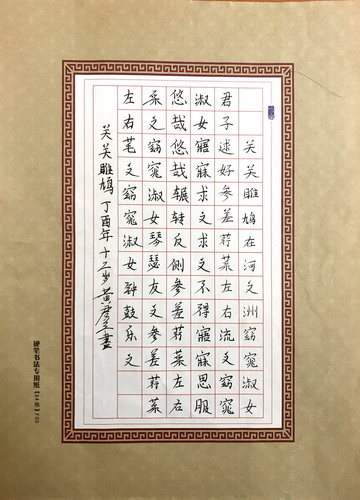 关关雎鸠在河之洲窈窕淑女
君子逑好参差荇菜左右流之窈窕
淑女寤寐求之求之不得寤寐思服
悠哉悠哉辗转反侧参差荇菜左右
采之窈窕淑女琴瑟友之参差荇菜
左右芼之窈窕淑女钟鼓乐之
关关雎鸠 丁酉年 十二岁 黄君書
硬笔书法专用纸【84格】